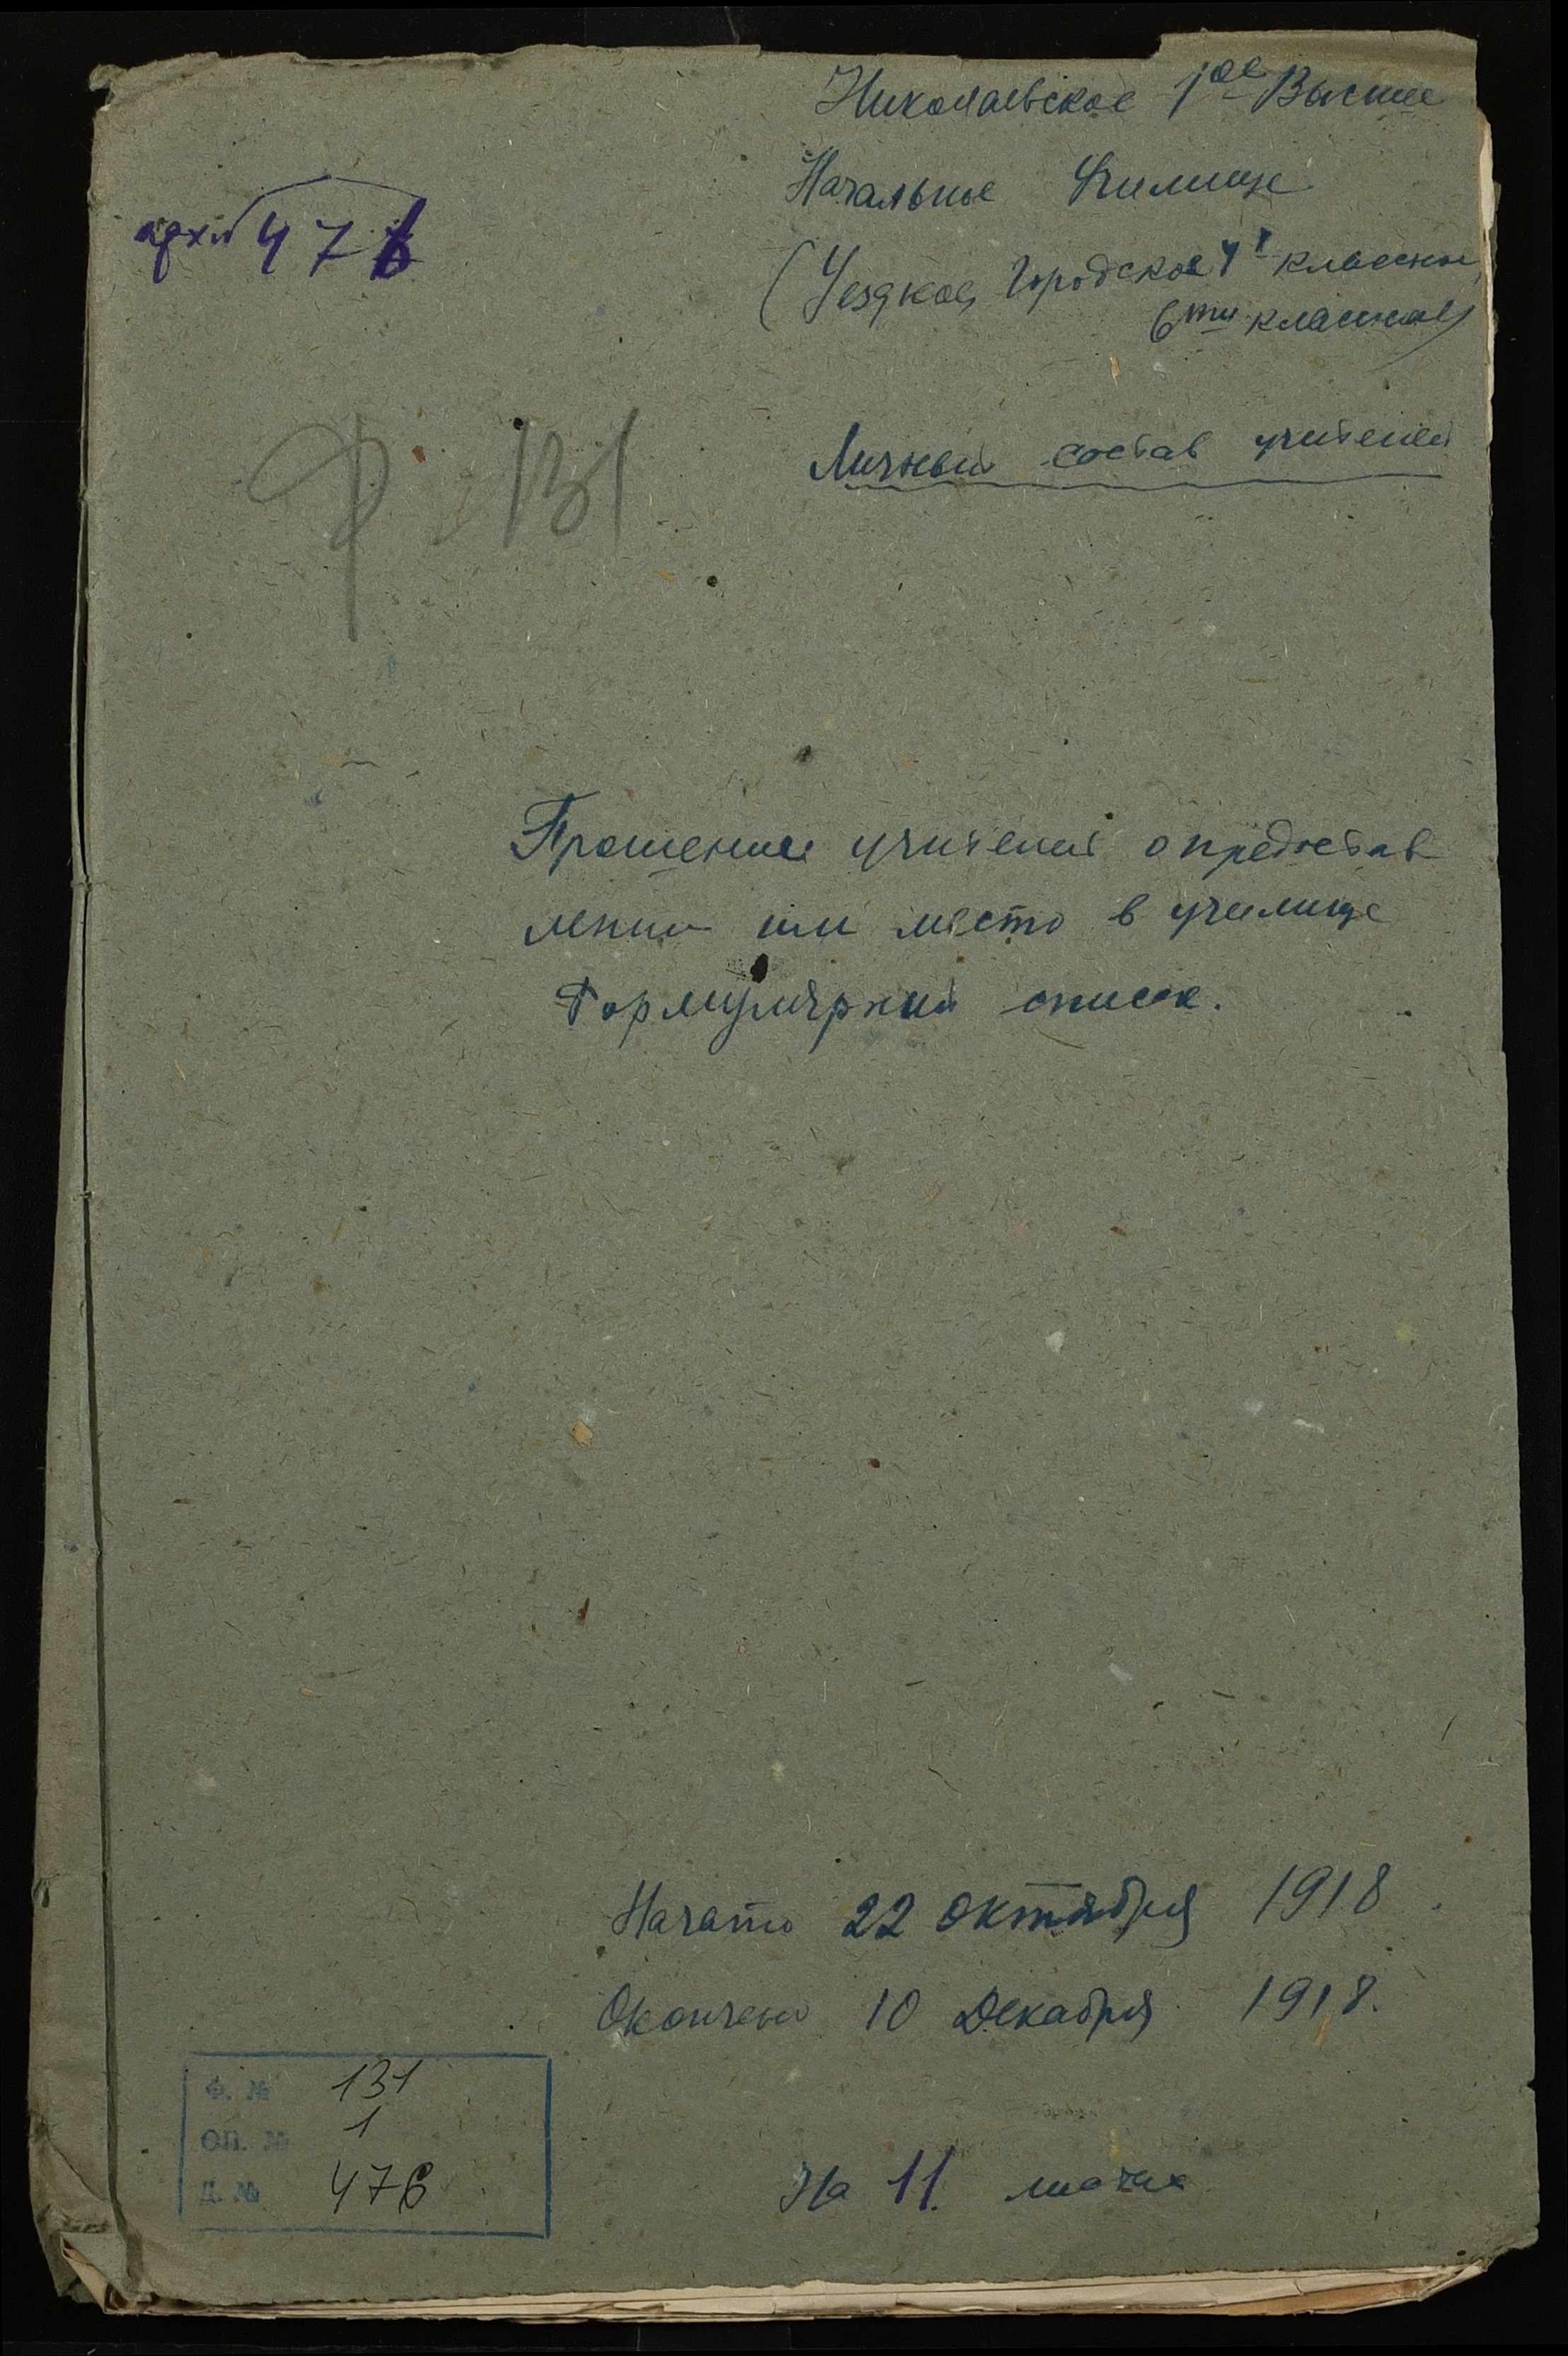 Николаевское 1ое Высшее
Начальное Училище
арх. 476
(Уездное, Городское 4х классное,
6ти классное)
Ф 131
Личный состав учителей
Прошение учителей о предостав
лении им место в училище
Формулярный список.
Начато 22 октября 1918
Окончено 10 Декабря 1918.
Ф. № 131
ОП. № 1
Д. № 476
На 11 листах